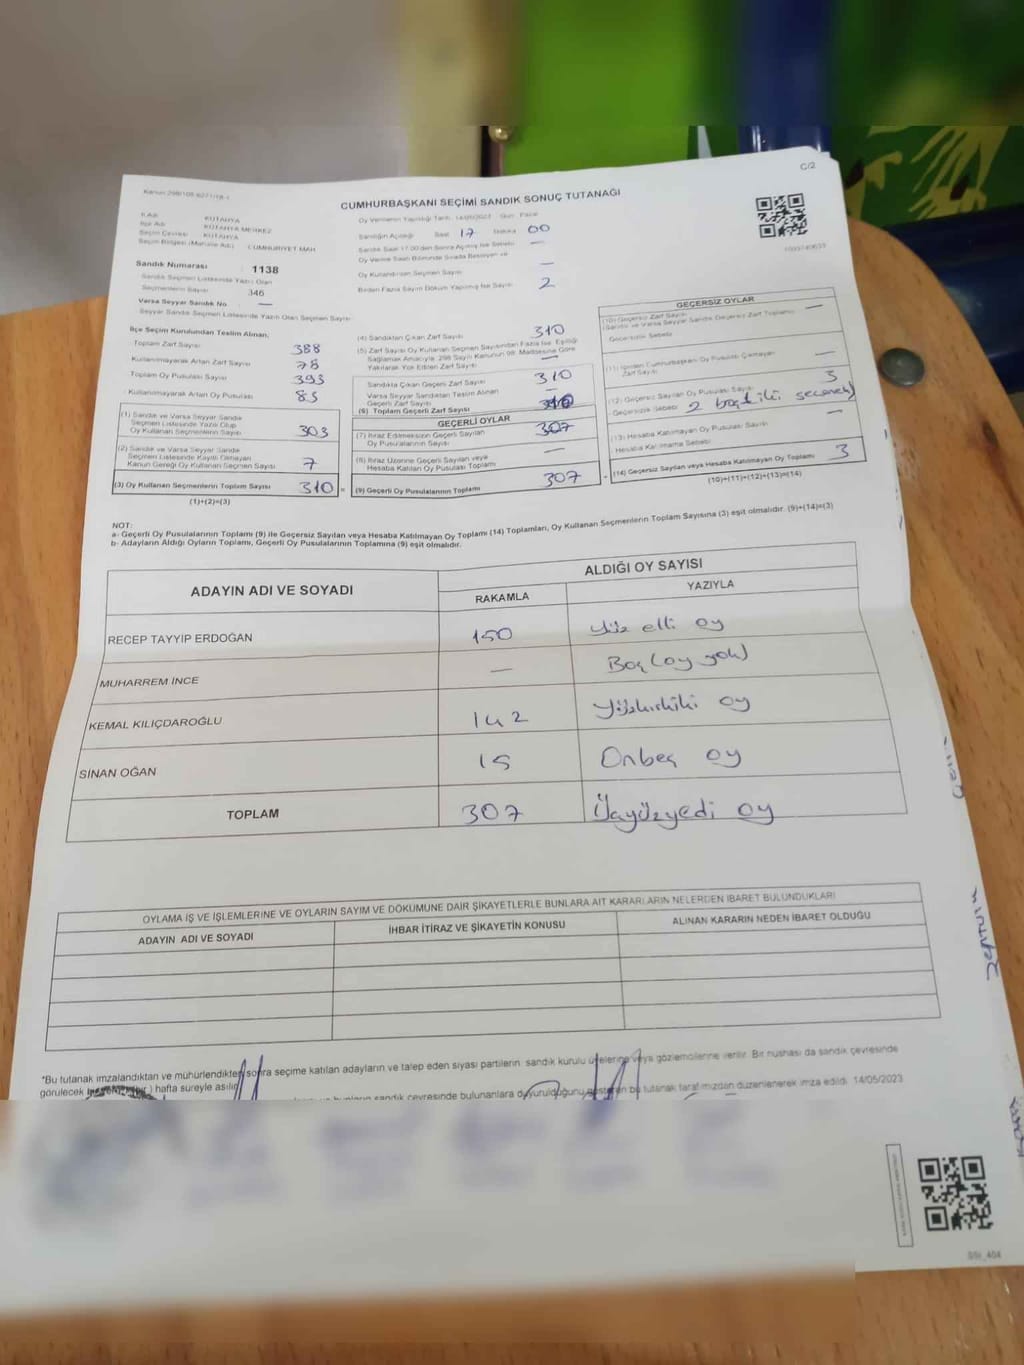 C/2
CUMHURBAŞKANI SEÇİMİ SANDIK SONUÇ TUTANAĞI
İli Adı KÜTAHYA
İlçe Adı KÜTAHYA MERKEZ
Seçim Çevresi KÜTAHYA
Seçim Bölgesi (Mahalle Adı) CUMHURİYET MAH
Sandık Numarası : 1138
Sandık Seçmen Listesinde Yazılı Olan
Seçmenlerin Sayısı 346
Varsa Seyyar Sandık No —
Seyyar Sandık Seçmen Listesinde Yazılı Olan Seçmen Sayısı
Oy Vermenin Yapıldığı Tarih : 14/05/2023 Gün : Pazar
Sandığın Açıldığı Saat 17 Dakika 00
Sandık Saat 17.00'den Sonra Açılmış İse Sebebi —
Oy Kullandırılan Seçmen Sayısı —
Birden Fazla Sayım Döküm Yapılmış İse Sayısı 2
İlçe Seçim Kurulundan Teslim Alınan,
Toplam Zarf Sayısı 388
Kullanılmayarak Artan Zarf Sayısı 78
Toplam Oy Pusulası Sayısı 393
Kullanılmayarak Artan Oy Pusulası 83
(1) Sandık ve Varsa Seyyar Sandık
Seçmen Listesinde Yazılı Olup
Oy Kullanan Seçmenlerin Sayısı 303
(2) Sandık ve Varsa Seyyar Sandık
Seçmen Listesinde Kayıtlı Olmayan
Kanun Gereği Oy Kullanan Seçmen Sayısı 7
(3) Oy Kullanan Seçmenlerin Toplam Sayısı 310
(1)+(2)=(3)
(4) Sandıktan Çıkan Zarf Sayısı 310
(5) Zarf Sayısı Oy Kullanan Seçmen Sayısından Fazla İse, Eşitliği
Sağlamak Amacıyla; 298 Sayılı Kanunun 98. Maddesine Göre
Yakılarak Yok Edilen Zarf Sayısı —
Sandıkta Çıkan Geçerli Zarf Sayısı 310
Varsa Seyyar Sandıktan Teslim Alınan
Geçerli Zarf Sayısı —
(6) Toplam Geçerli Zarf Sayısı 310
GEÇERLİ OYLAR
(7) İtiraz Edilmeksizin Geçerli Sayılan
Oy Pusulalarının Sayısı 307
(8) İtiraz Üzerine Geçerli Sayılan veya
Hesaba Katılan Oy Pusulası Toplamı —
(9) Geçerli Oy Pusulalarının Toplamı 307
GEÇERSİZ OYLAR
(10) Geçersiz Zarf Sayısı —
(Sandık ve Varsa Seyyar Sandık Geçersiz Zarf Toplamı)
Geçersizlik Sebebi
(11) İçinden Cumhurbaşkanı Oy Pusulası Çıkmayan
Zarf Sayısı —
(12) Geçersiz Sayılan Oy Pusulası Sayısı 3
Geçersizlik Sebebi 2 boş 1 iki seçenek)
(13) Hesaba Katılmayan Oy Pusulası Sayısı —
Hesaba Katılmama Sebebi
(14) Geçersiz Sayılan veya Hesaba Katılmayan Oy Toplamı 3
(10)+(11)+(12)+(13)=(14)
NOT:
a- Geçerli Oy Pusulalarının Toplamı (9) ile Geçersiz Sayılan veya Hesaba Katılmayan Oy Toplamı (14) Toplamları, Oy Kullanan Seçmenlerin Toplam Sayısına (3) eşit olmalıdır. (9)+(14)=(3)
b- Adayların Aldığı Oyların Toplamı, Geçerli Oy Pusulalarının Toplamına (9) eşit olmalıdır.
ADAYIN ADI VE SOYADI
ALDIĞI OY SAYISI
RAKAMLA YAZIYLA
RECEP TAYYİP ERDOĞAN 150 Yüz elli oy
MUHARREM İNCE — Boş (oy yok)
KEMAL KILIÇDAROĞLU 142 Yüzkırkiki oy
SİNAN OĞAN 15 Onbeş oy
TOPLAM 307 Üçyüzyedi oy
OYLAMA İŞ VE İŞLEMLERİNE VE OYLARIN SAYIM VE DÖKÜMÜNE DAİR ŞİKAYETLERLE BUNLARA AİT KARARLARIN NELERDEN İBARET BULUNDUKLARI
ADAYIN ADI VE SOYADI İHBAR İTİRAZ VE ŞİKAYETİN KONUSU ALINAN KARARIN NEDEN İBARET OLDUĞU
*Bu tutanak imzalandıktan ve mühürlendikten sonra seçime katılan adayların ve talep eden siyasi partilerin sandık kurulu üyelerine veya gözlemcilerine verilir. Bir nüshası da sandık çevresinde
görülecek bir yere ( bir ) hafta süreyle asılır.
sandık çevresinde bulunanlara duyurulduğunu gösteren bu tutanak tarafımızdan düzenlenerek imza edildi. 14/05/2023